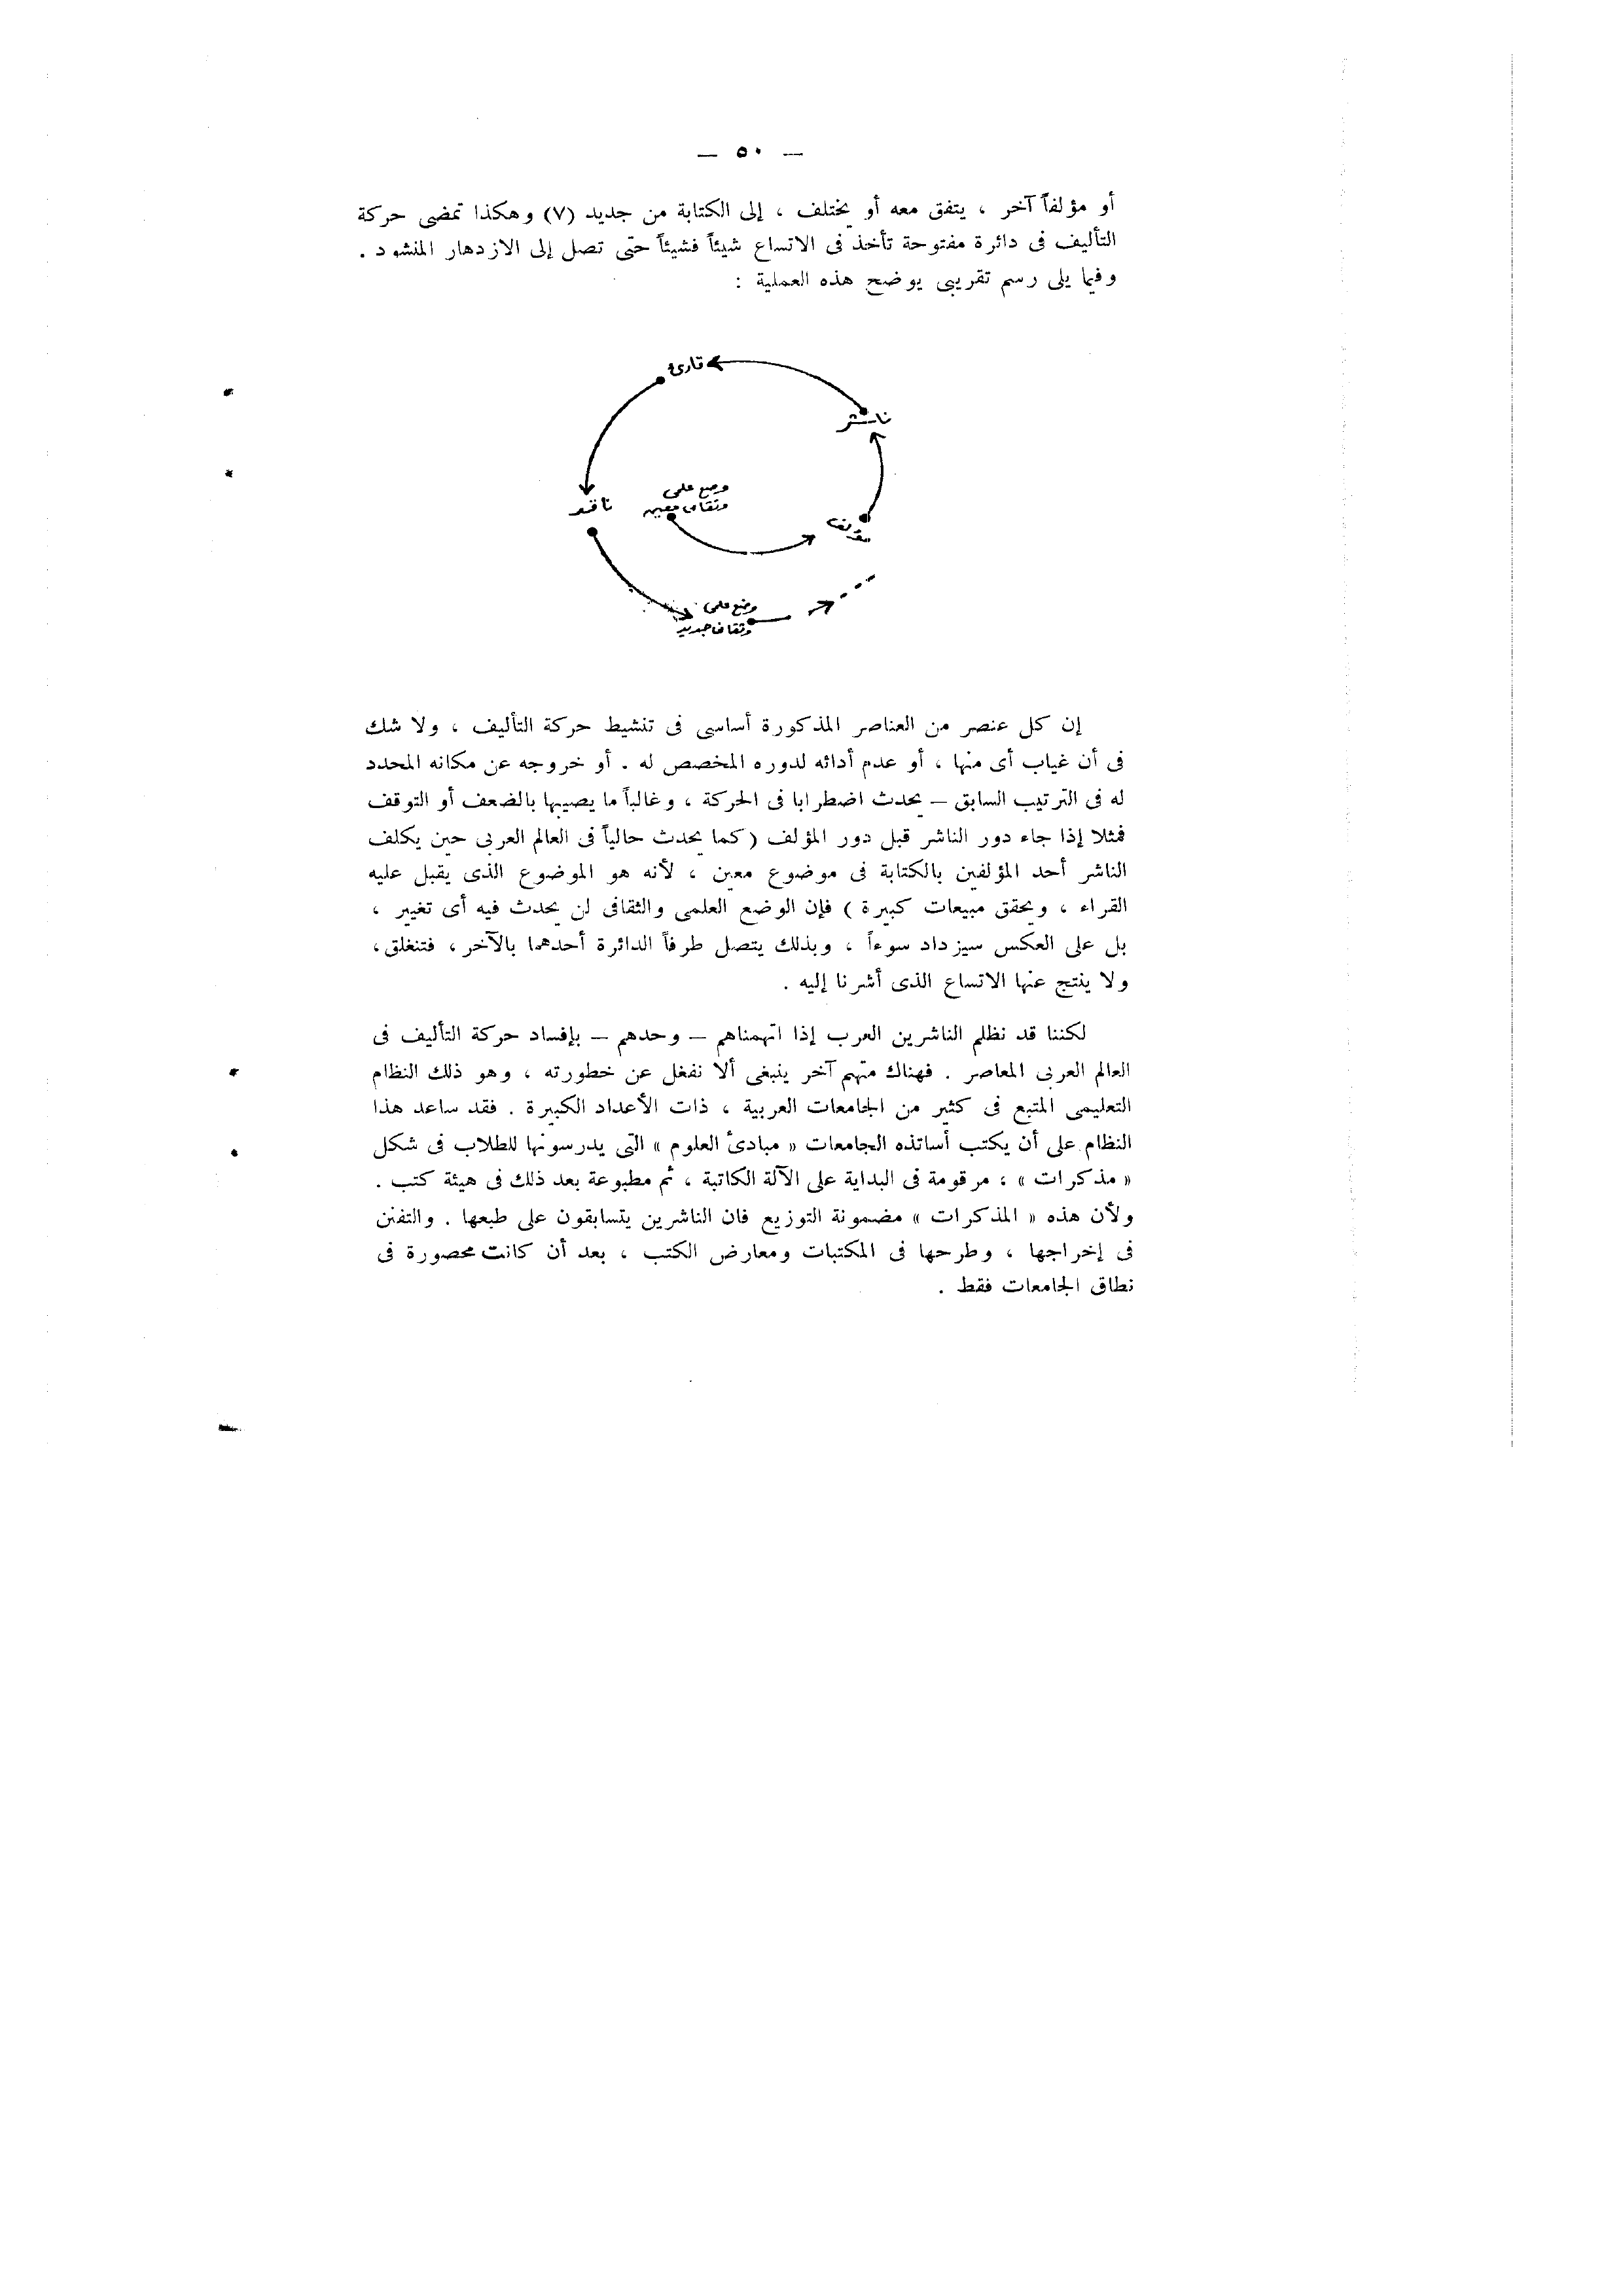 — ٥٠ —
أو مؤلفاً آخر ، يتفق معه أو يختلف ، إلى الكتابة من جديد (٧) وهكذا تمضى حركة
التأليف فى دائرة مفتوحة تأخذ فى الاتساع شيئاً فشيئاً حتى تصل إلى الازدهار المنشود .
وفيما يلى رسم تقريبى يوضح هذه العملية :
قارئ
ناشر
وضع علمى
وثقافى معين
ناقد
مؤلف
وضع علمى
وثقافى جديد
إن كل عنصر من العناصر المذكورة أساسى فى تنشيط حركة التأليف ، ولا شك
فى أن غياب أى منها ، أو عدم أدائه لدوره المخصص له . أو خروجه عن مكانه المحدد
له فى الترتيب السابق — يحدث اضطرابا فى الحركة ، وغالباً ما يصيبها بالضعف أو التوقف
فمثلا إذا جاء دور الناشر قبل دور المؤلف (كما يحدث حالياً فى العالم العربى حين يكلف
الناشر أحد المؤلفين بالكتابة فى موضوع معين ، لأنه هو الموضوع الذى يقبل عليه
القراء ، ويحقق مبيعات كبيرة ) فإن الوضع العلمى والثقافى لن يحدث فيه أى تغيير ،
بل على العكس سيزداد سوءاً ، وبذلك يتصل طرفاً الدائرة أحدهما بالآخر ، فتنغلق ،
ولا ينتج عنها الاتساع الذى أشرنا إليه .
لكننا قد نظلم الناشرين العرب إذا اتهمناهم — وحدهم — بإفساد حركة التأليف فى
العالم العربى المعاصر . فهناك متهم آخر ينبغى ألا نغفل عن خطورته ، وهو ذلك النظام
التعليمى المتبع فى كثير من الجامعات العربية ، ذات الأعداد الكبيرة . فقد ساعد هذا
النظام على أن يكتب أساتذه الجامعات « مبادئ العلوم » التى يدرسونها للطلاب فى شكل
« مذكرات » ، مرقومة فى البداية على الآلة الكاتبة ، ثم مطبوعة بعد ذلك فى هيئة كتب .
ولأن هذه « المذكرات » مضمونة التوزيع فان الناشرين يتسابقون على طبعها . والتفنن
فى إخراجها ، وطرحها فى المكتبات ومعارض الكتب ، بعد أن كانت محصورة فى
نطاق الجامعات فقط .